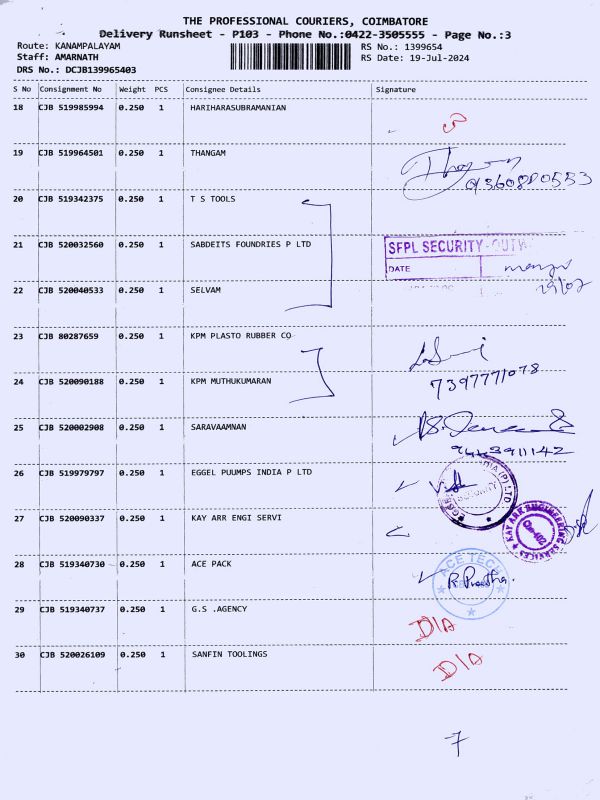 THE PROFESSIONAL COURIERS, COIMBATORE
Delivery Runsheet - P103 - Phone No.:0422-3505555 - Page No.:3
Route: KANAMPALAYAM RS No.: 1399654
Staff: AMARNATH RS Date: 19-Jul-2024
DRS No.: DCJB139965403
S No Consignment No Weight PCS Consignee Details Signature
18 CJB 519985994 0.250 1 HARIHARASUBRAMANIAN
19 CJB 519964501 0.250 1 THANGAM
20 CJB 519342375 0.250 1 T S TOOLS
21 CJB 520032560 0.250 1 SABDEITS FOUNDRIES P LTD SFPL SECURITY-OUTW
DATE
22 CJB 520040533 0.250 1 SELVAM 19/07
23 CJB 80287659 0.250 1 KPM PLASTO RUBBER CO
24 CJB 520090188 0.250 1 KPM MUTHUKUMARAN 7397771078
25 CJB 520002908 0.250 1 SARAVAAMNAN
9443911142
26 CJB 519979797 0.250 1 EGGEL PUUMPS INDIA P LTD SECURITY
27 CJB 520090337 0.250 1 KAY ARR ENGI SERVI KAY ARR ENGINEERING SERVICES
28 CJB 519340730 0.250 1 ACE PACK ACE TECH
29 CJB 519340737 0.250 1 G.S .AGENCY D/A
30 CJB 520026109 0.250 1 SANFIN TOOLINGS D/A
7